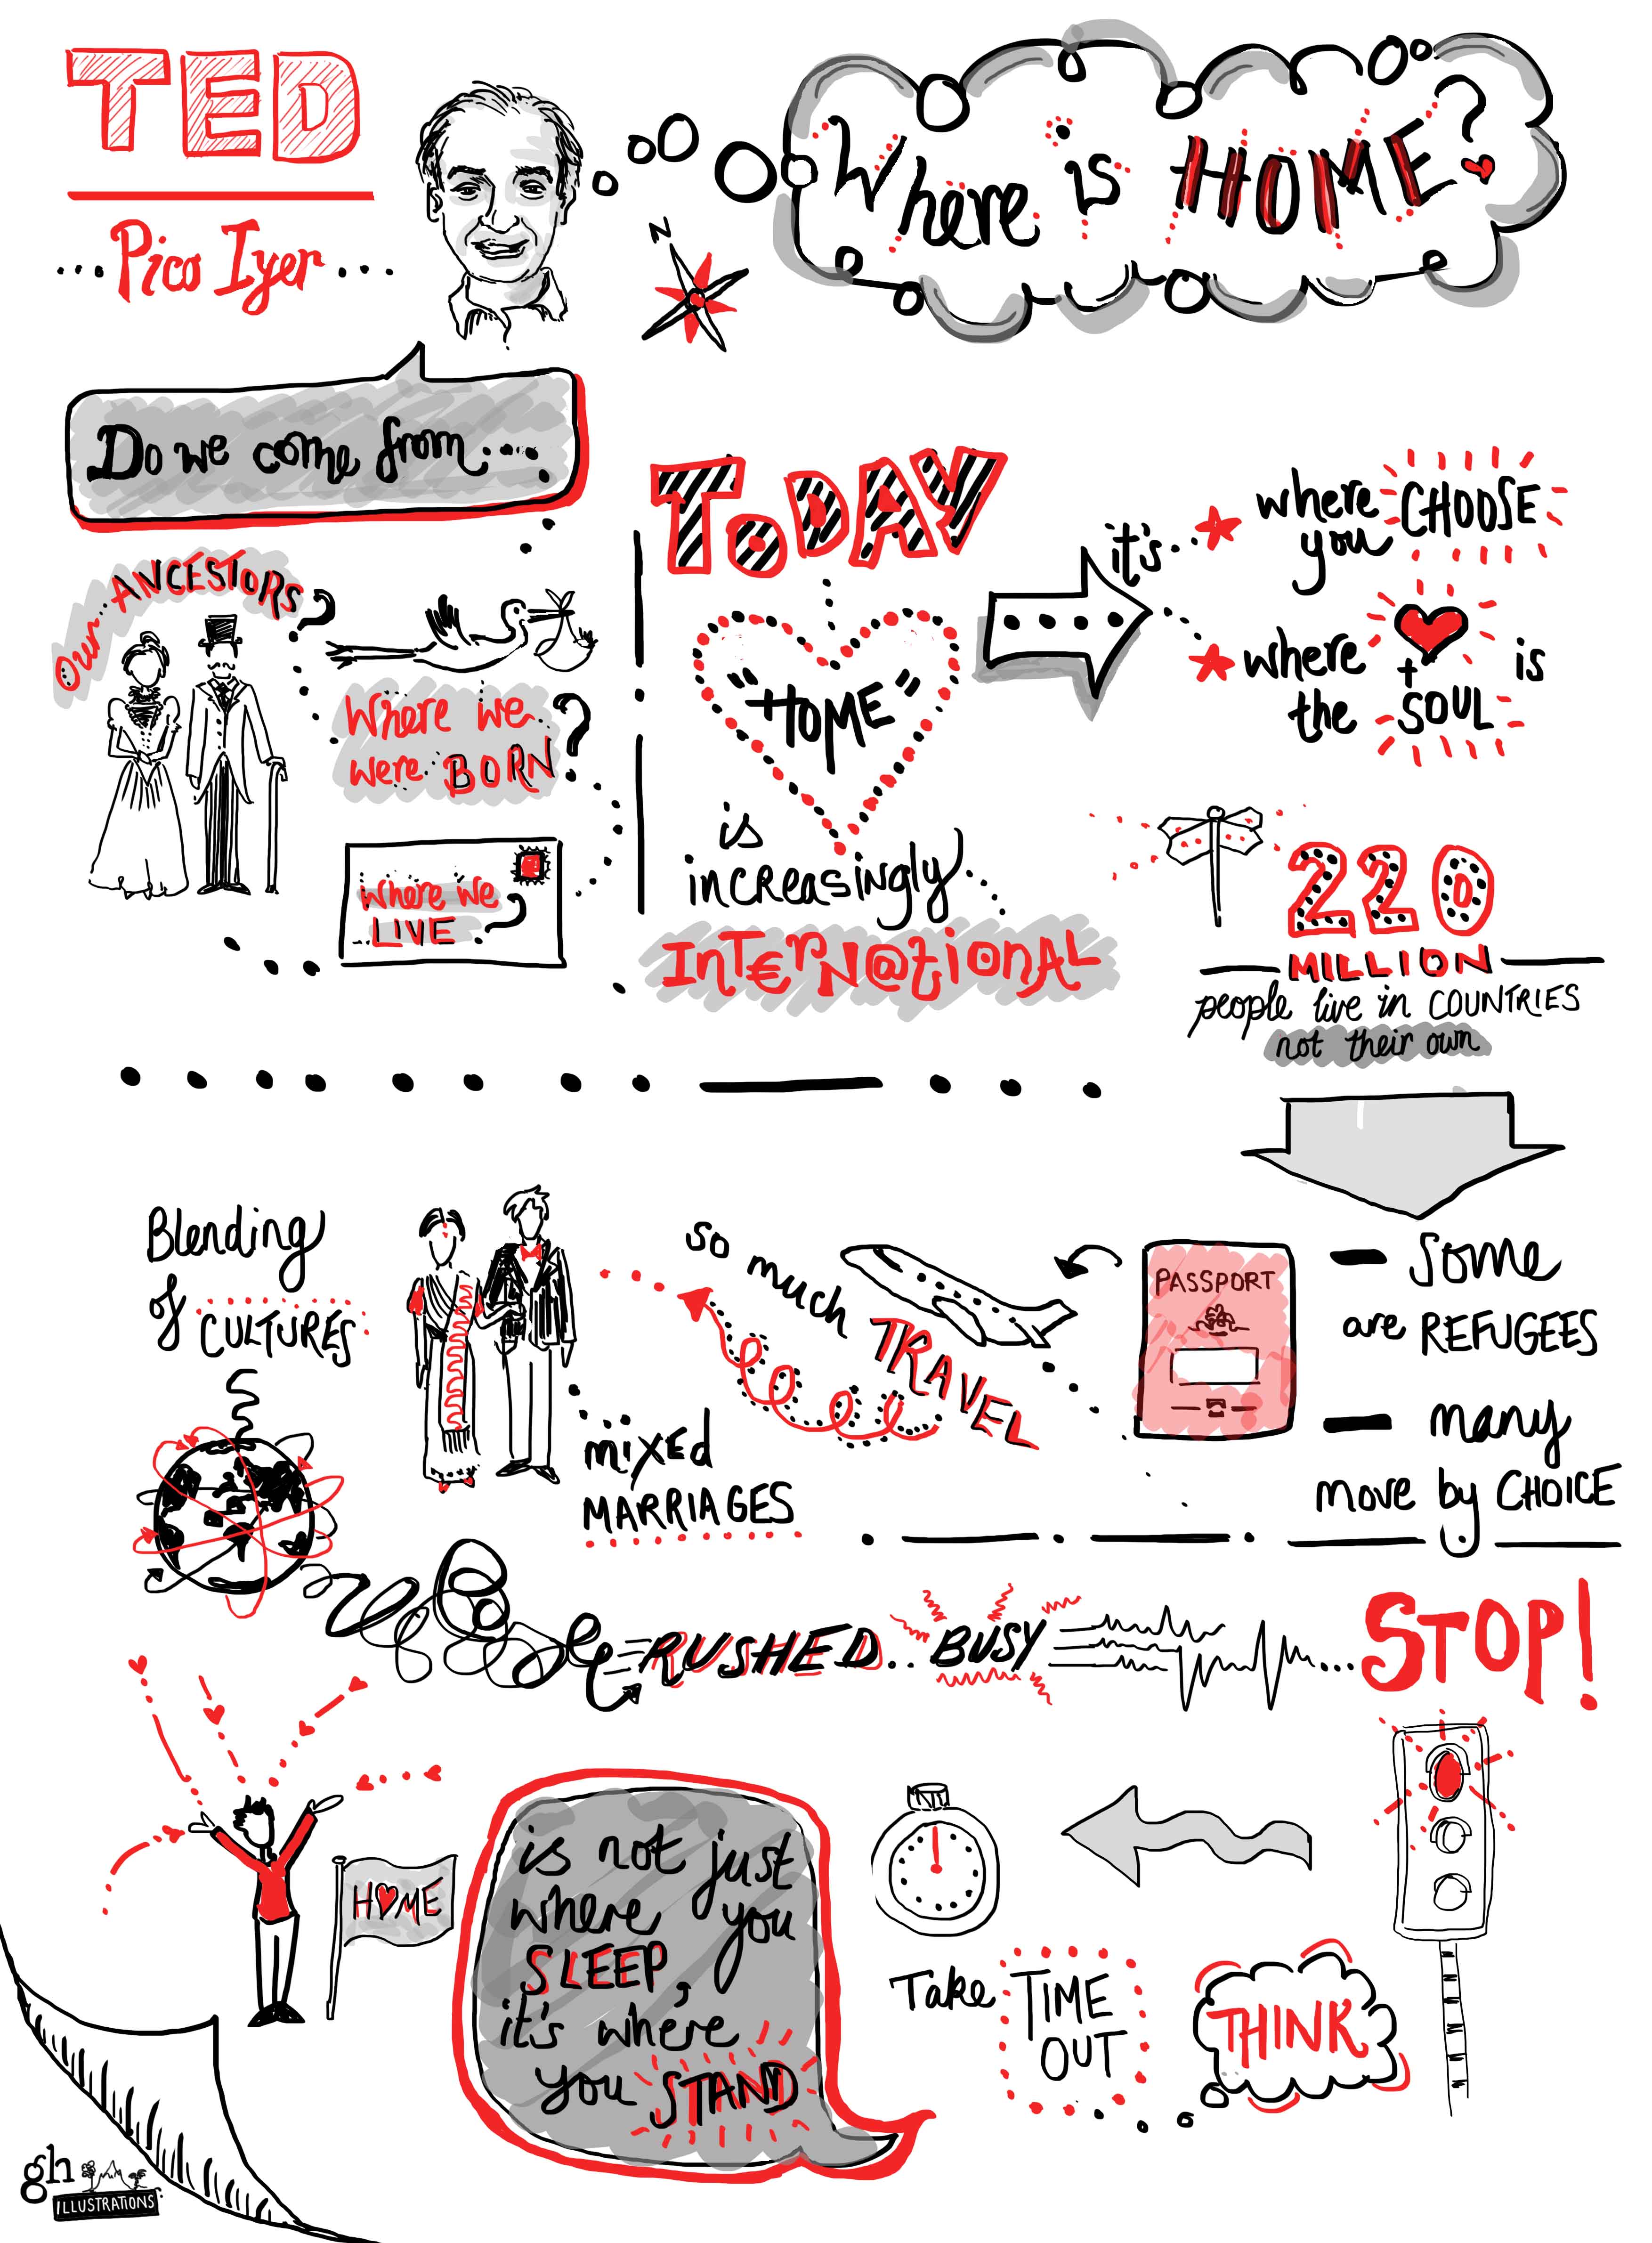 TED
Pico Iyer
N
Where is HOME?
Do we come from....
Our ANCESTORS?
Where we
were BORN?
Where we
LIVE?
TODAY
"HOME"
is
increasingly
INT€RN@tiONAL
it's..
where
you CHOOSE
where
+
is
the SOUL
220
MILLION
people live in COUNTRIES
not their own
Some
are REFUGEES
many
move by CHOICE
PASSPORT
so much TRAVEL
mixed
MARRIAGES
Blending
of
CULTURES
RUSHED.. BUSY ...STOP!
THINK
Take TIME
OUT
HOME
is not just
where you
SLEEP,
it's where
you STAND
gh
ILLUSTRATIONS